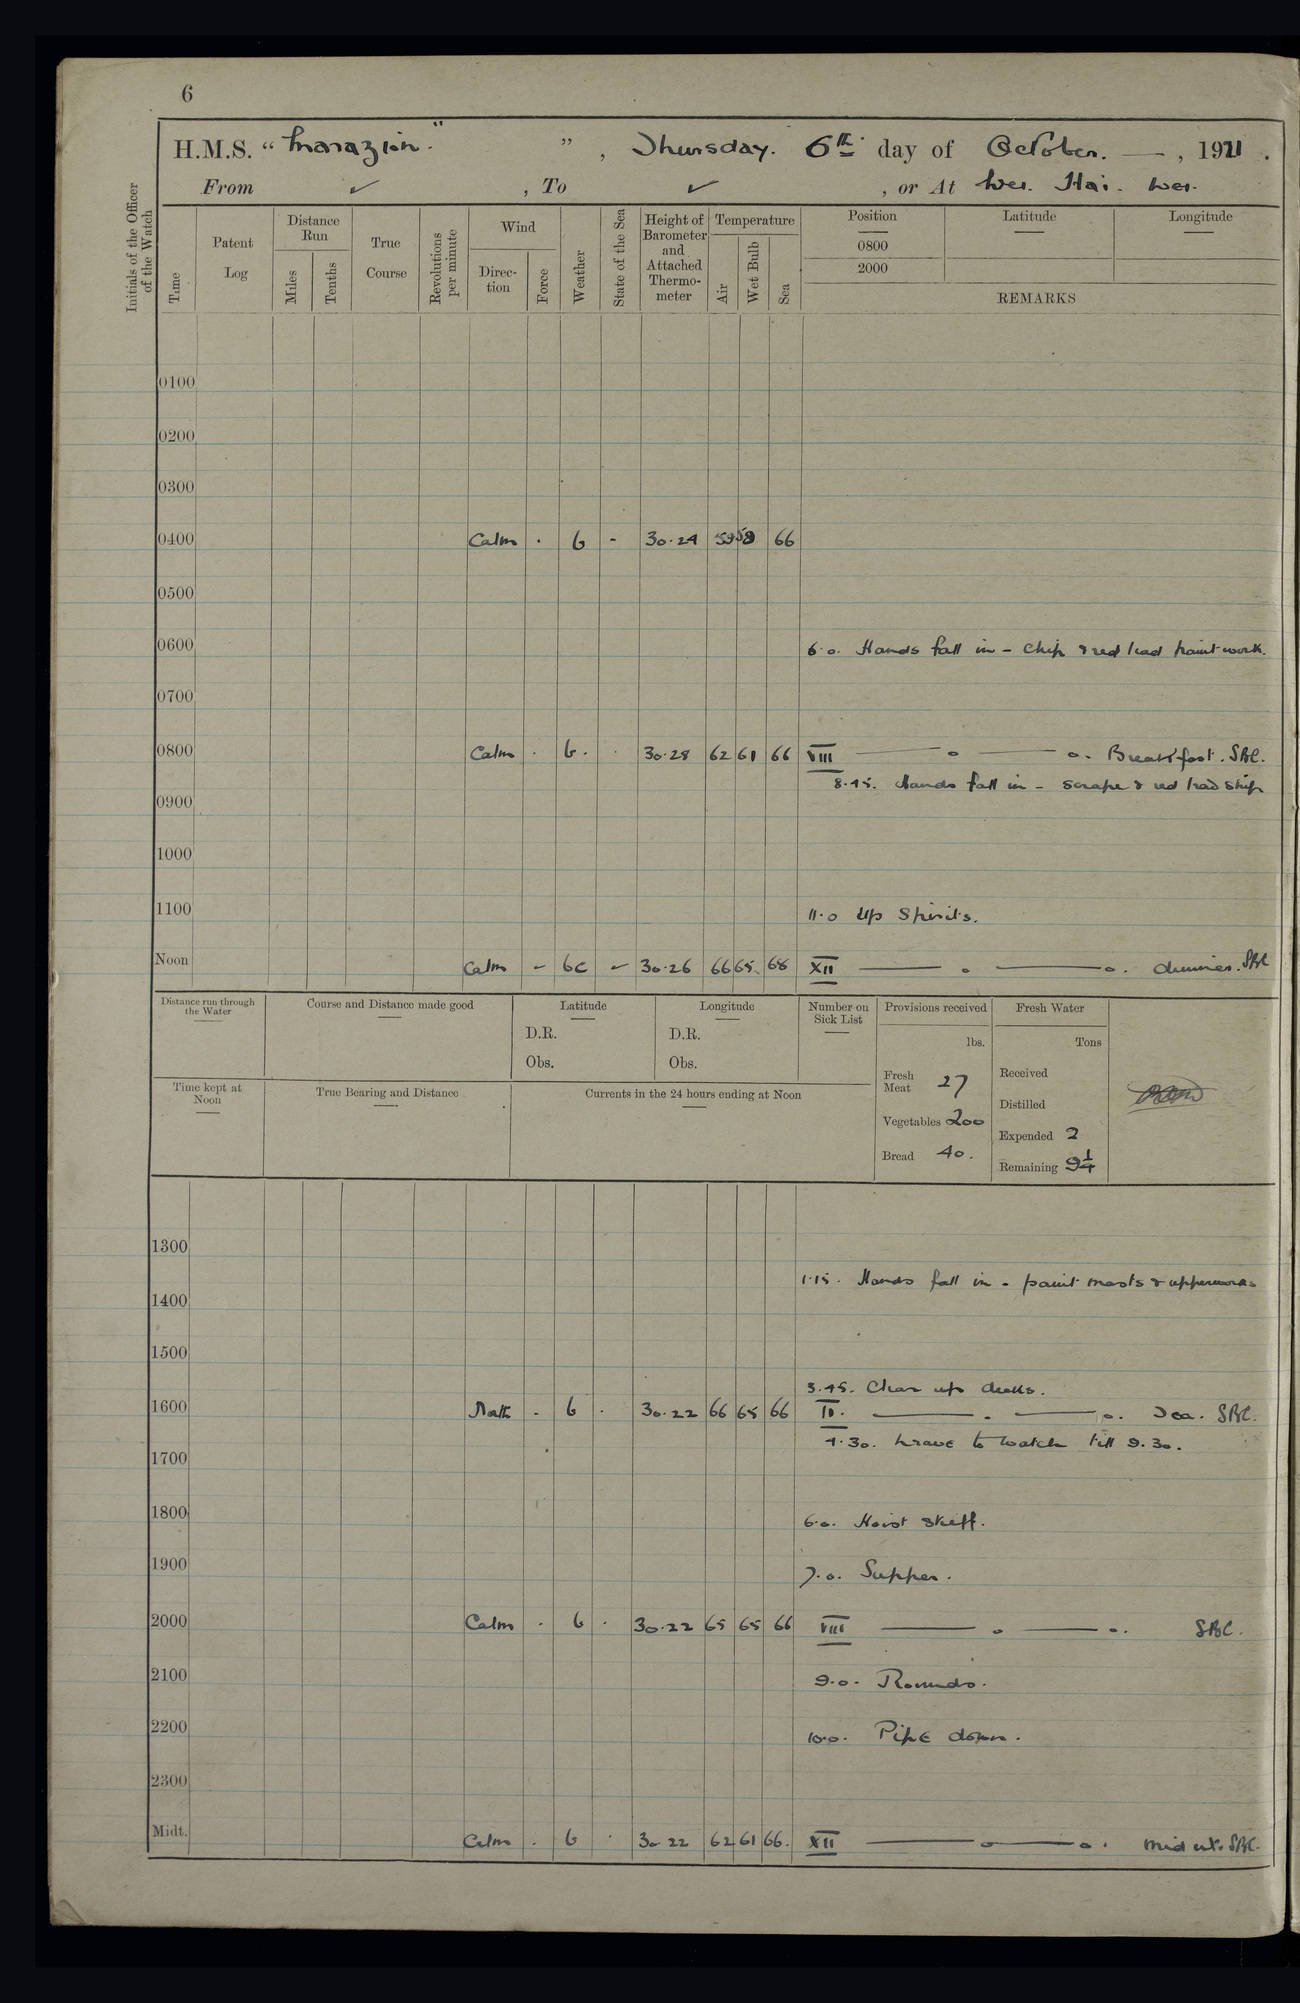 6
H.M.S. “ Marazion. ” , Thursday. 6th day of October. — , 1921 .
From ✓ , To ✓ , or At Wei. Hai. Wei.
Initials of the Officer of the Watch
Time
Patent Log
Distance Run
Miles
Tenths
True Course
Revolutions per minute
Wind
Direction
Force
Weather
State of the Sea
Height of Barometer and Attached Thermometer
Temperature
Air
Wet Bulb
Sea
Position Latitude Longitude
0800
2000
REMARKS
0100
0200
0300
0400 Calm · b - 30·24 59 58 66
0500
0600 6·0. Hands fall in – chip & red lead paint work.
0700
0800 Calm · b. · 30·28 62 61 66 VIII —— o —— o. Breakfast. SBC.
8·45. Hands fall in – scrape & red lead ship
0900
1000
1100 11·0 Up Spirits.
Noon Calm – bc – 30·26 66 65 68 XII —— o —— o. dinner. SBC
Distance run through the Water
Course and Distance made good
Latitude
D.R.
Obs.
Longitude
D.R.
Obs.
Number on Sick List
Provisions received
lbs.
Fresh Meat 27
Vegetables 200
Bread 40.
Fresh Water
Tons
Received
Distilled
Expended 2
Remaining 9¼
Time kept at Noon
True Bearing and Distance
Currents in the 24 hours ending at Noon
1300
1·15. Hands fall in – paint masts & upperworks
1400
1500
3·45. Clear up decks.
1600 North - b · 30·22 66 65 66 IV. —— . —— o. Tea. SBC.
4·30. Leave to watch till 9.30.
1700
1800 6·0. Hoist skiff.
1900 7·0. Supper.
2000 Calm · b · 30·22 65 65 66 VIII —— o —— o. SBC.
2100 9·0. Rounds.
2200 10·0. Pipe down.
2300
Midt. Calm . b · 30 22 62 61 66. XII —— o —— o. Midnt. SBC.